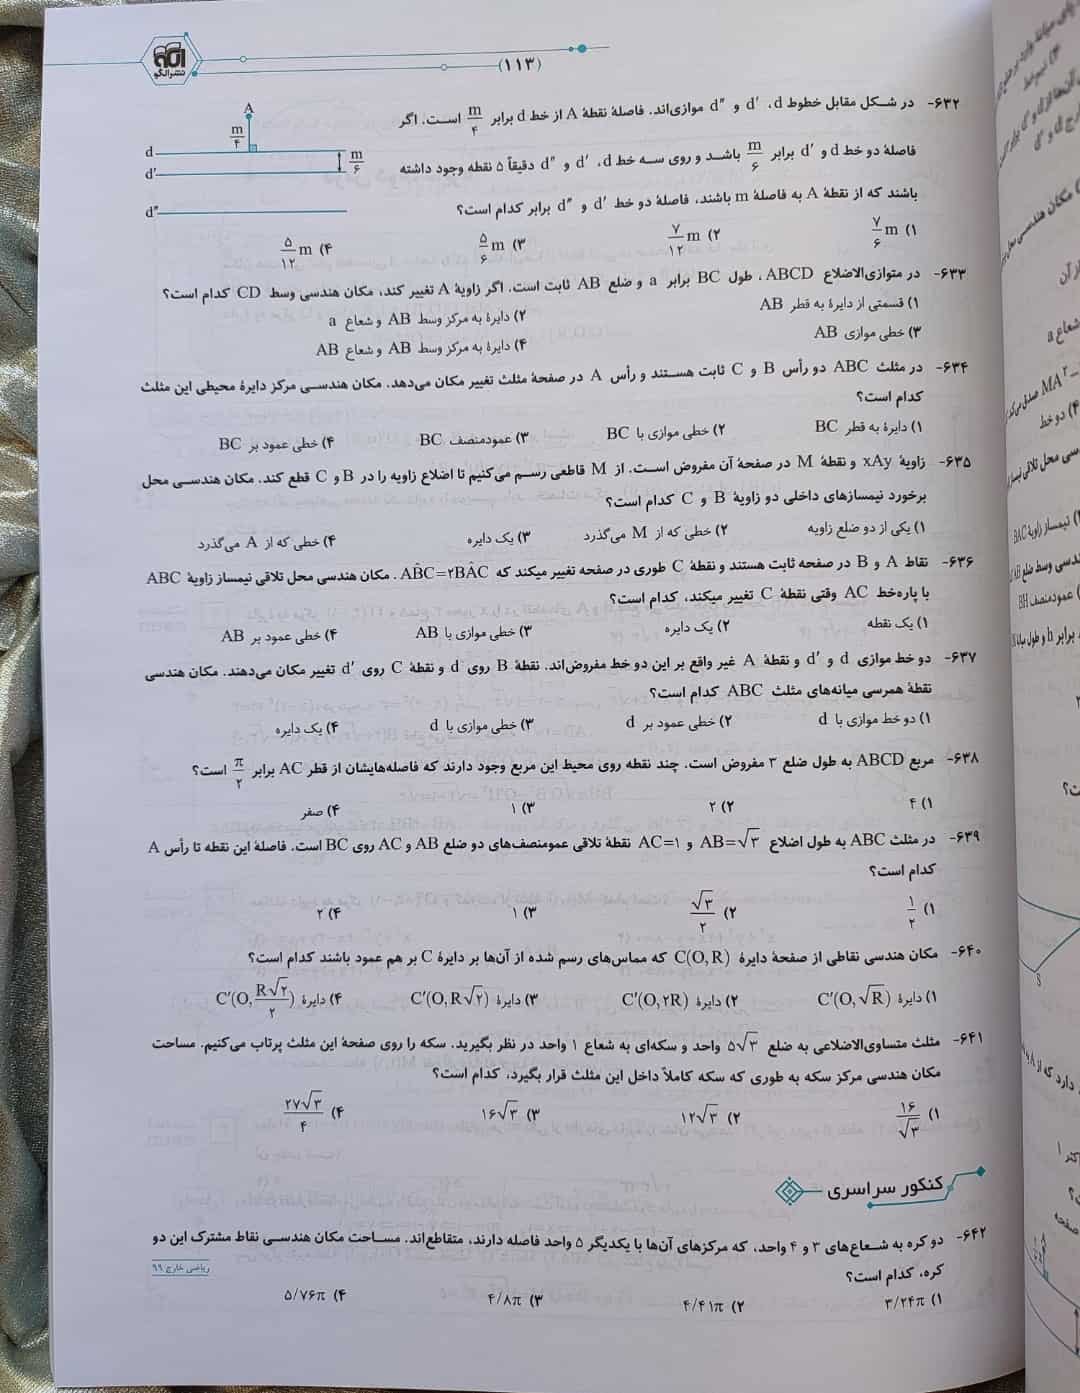 نشر الگو
(۱۱۳)
۶۳۲- در شکل مقابل خطوط d، d′ و d″ موازی‌اند. فاصلهٔ نقطهٔ A از خط d برابر m/۴ است. اگر
فاصلهٔ دو خط d و d′ برابر m/۶ باشد و روی سه خط d، d′ و d″ دقیقاً ۵ نقطه وجود داشته
باشند که از نقطهٔ A به فاصلهٔ m باشند، فاصلهٔ دو خط d′ و d″ برابر کدام است؟
A
m/۴
d
m/۶
d′
d″
۱) ۷/۶ m ۲) ۷/۱۲ m ۳) ۵/۶ m ۴) ۵/۱۲ m
۶۳۳- در متوازی‌الاضلاع ABCD، طول BC برابر a و ضلع AB ثابت است. اگر زاویهٔ A تغییر کند، مکان هندسی وسط CD کدام است؟
۱) قسمتی از دایرهٔ به قطر AB ۲) دایرهٔ به مرکز وسط AB و شعاع a
۳) خطی موازی AB ۴) دایرهٔ به مرکز وسط AB و شعاع AB
۶۳۴- در مثلث ABC دو رأس B و C ثابت هستند و رأس A در صفحهٔ مثلث تغییر مکان می‌دهد. مکان هندسی مرکز دایرهٔ محیطی این مثلث
کدام است؟
۱) دایرهٔ به قطر BC ۲) خطی موازی با BC ۳) عمودمنصف BC ۴) خطی عمود بر BC
۶۳۵- زاویهٔ xAy و نقطهٔ M در صفحهٔ آن مفروض است. از M قاطعی رسم می‌کنیم تا اضلاع زاویه را در B و C قطع کند. مکان هندسی محل
برخورد نیمسازهای داخلی دو زاویهٔ B و C کدام است؟
۱) یکی از دو ضلع زاویه ۲) خطی که از M می‌گذرد ۳) یک دایره ۴) خطی که از A می‌گذرد
۶۳۶- نقاط A و B در صفحه ثابت هستند و نقطهٔ C طوری در صفحه تغییر میکند که AB̂C=۲BÂC. مکان هندسی محل تلاقی نیمساز زاویهٔ ABC
با پاره‌خط AC وقتی نقطهٔ C تغییر میکند، کدام است؟
۱) یک نقطه ۲) یک دایره ۳) خطی موازی با AB ۴) خطی عمود بر AB
۶۳۷- دو خط موازی d و d′ و نقطهٔ A غیر واقع بر این دو خط مفروض‌اند. نقطهٔ B روی d و نقطهٔ C روی d′ تغییر مکان می‌دهند. مکان هندسی
نقطهٔ همرسی میانه‌های مثلث ABC کدام است؟
۱) دو خط موازی با d ۲) خطی عمود بر d ۳) خطی موازی با d ۴) یک دایره
۶۳۸- مربع ABCD به طول ضلع ۳ مفروض است. چند نقطه روی محیط این مربع وجود دارند که فاصله‌هایشان از قطر AC برابر π/۲ است؟
۱) ۴ ۲) ۲ ۳) ۱ ۴) صفر
۶۳۹- در مثلث ABC به طول اضلاع AB=√۳ و AC=۱ نقطهٔ تلاقی عمومنصف‌های دو ضلع AB و AC روی BC است. فاصلهٔ این نقطه تا رأس A
کدام است؟
۱) ۱/۲ ۲) √۳/۲ ۳) ۱ ۴) ۲
۶۴۰- مکان هندسی نقاطی از صفحهٔ دایرهٔ C(O,R) که مماس‌های رسم شده از آن‌ها بر دایرهٔ C بر هم عمود باشند کدام است؟
۱) دایرهٔ C′(O,√R) ۲) دایرهٔ C′(O,۲R) ۳) دایرهٔ C′(O,R√۲) ۴) دایرهٔ C′(O,R√۲/۲)
۶۴۱- مثلث متساوی‌الاضلاعی به ضلع ۵√۳ واحد و سکه‌ای به شعاع ۱ واحد در نظر بگیرید. سکه را روی صفحهٔ این مثلث پرتاب می‌کنیم. مساحت
مکان هندسی مرکز سکه به طوری که سکه کاملاً داخل این مثلث قرار بگیرد، کدام است؟
۱) ۱۶/√۳ ۲) ۱۲√۳ ۳) ۱۶√۳ ۴) ۲۷√۳/۴
کنکور سراسری
۶۴۲- دو کره به شعاع‌های ۳ و ۴ واحد، که مرکزهای آن‌ها با یکدیگر ۵ واحد فاصله دارند، متقاطع‌اند. مساحت مکان هندسی نقاط مشترک این دو
کره، کدام است؟
ریاضی خارج ۹۹
۱) ۳/۲۴π ۲) ۴/۴۱π ۳) ۴/۸π ۴) ۵/۷۶π